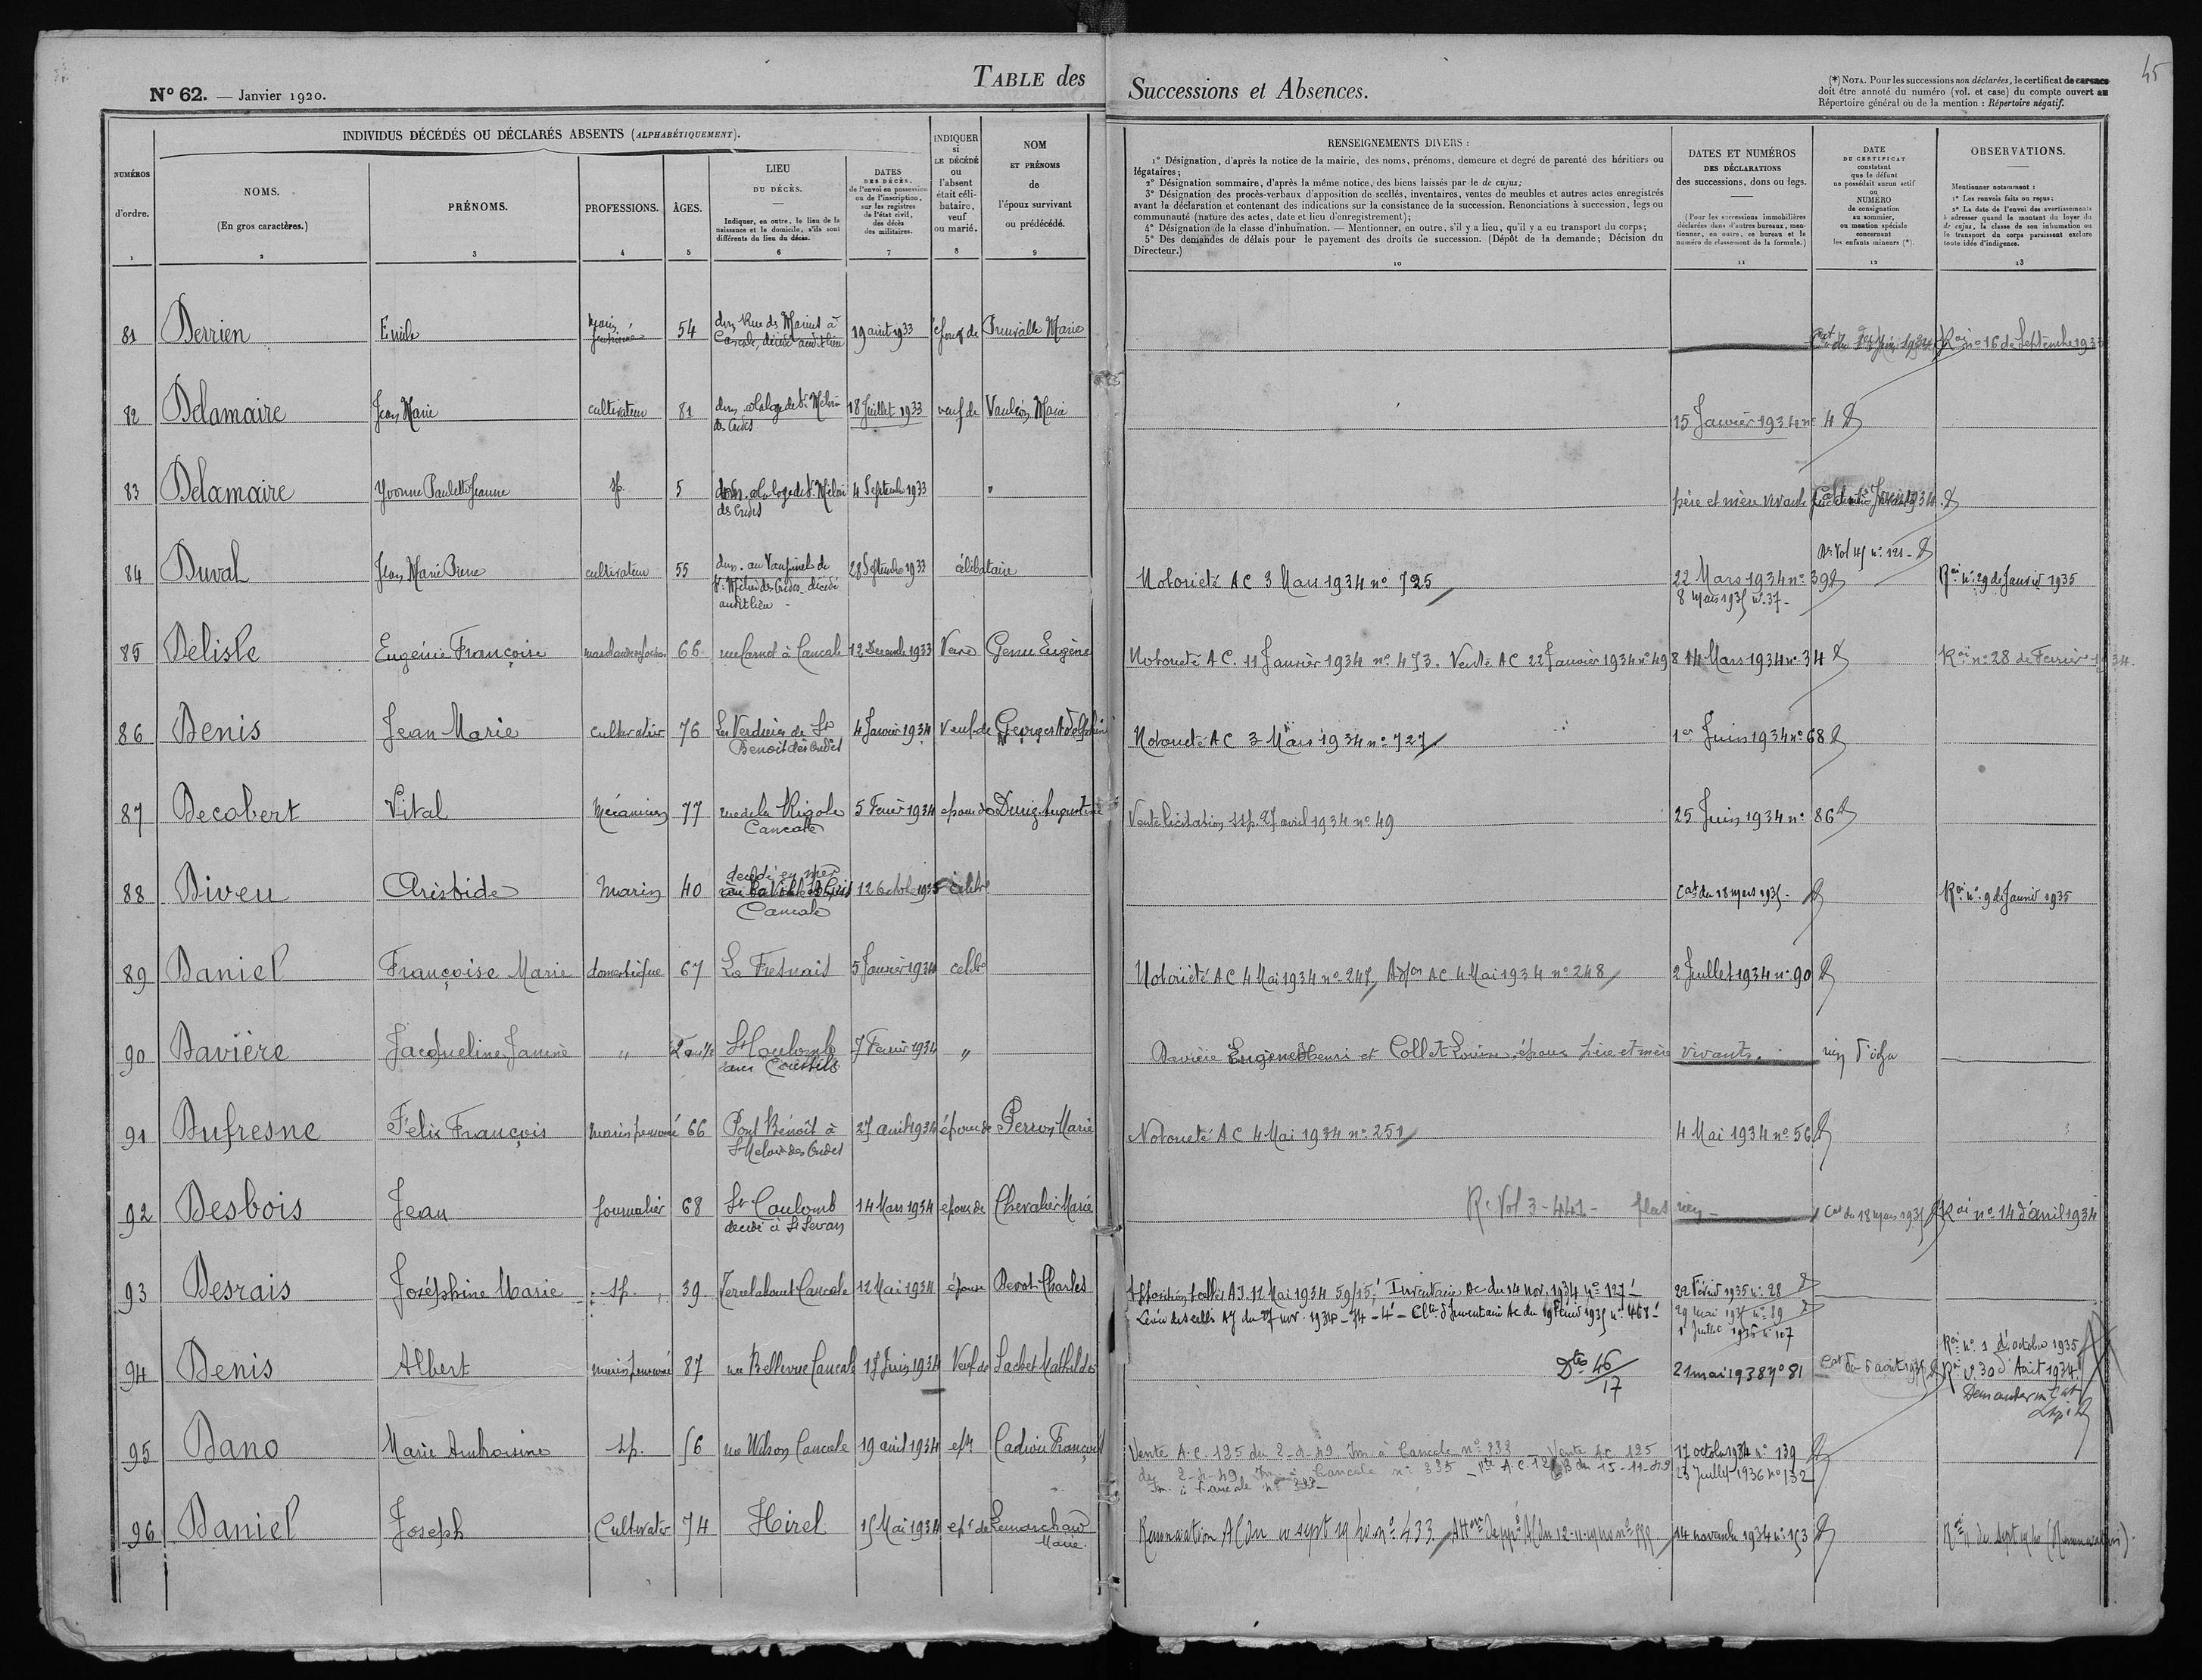 45
N° 62. — Janvier 1920.
TABLE des Successions et Absences.
(*) NOTA. Pour les successions non déclarées, le certificat de carence
doit être annoté du numéro (vol. et case) du compte ouvert au
Répertoire général ou de la mention : Répertoire négatif.
NUMÉROS
d'ordre.
1
INDIVIDUS DÉCÉDÉS OU DÉCLARÉS ABSENTS (ALPHABÉTIQUEMENT).
NOMS.
(En gros caractères.)
2
PRÉNOMS.
3
PROFESSIONS.
4
ÂGES.
5
LIEU
DU DÉCÈS.
Indiquer, en outre, le lieu de la
naissance et le domicile, s'ils sont
différents du lieu du décès.
6
DATES
DES DÉCÈS,
de l'envoi en possession
ou de l'inscription,
sur les registres
de l'état civil,
des décès
des militaires.
7
INDIQUER
si
LE DÉCÉDÉ
ou
l'absent
était céli-
bataire,
veuf
ou marié.
8
NOM
ET PRÉNOMS
de
l'époux survivant
ou prédécédé.
9
RENSEIGNEMENTS DIVERS :
1° Désignation, d'après la notice de la mairie, des noms, prénoms, demeure et degré de parenté des héritiers ou
légataires;
2° Désignation sommaire, d'après la même notice, des biens laissés par le de cujus;
3° Désignation des procès-verbaux d'apposition de scellés, inventaires, ventes de meubles et autres actes enregistrés
avant la déclaration et contenant des indications sur la consistance de la succession. Renonciations à succession, legs ou
communauté (nature des actes, date et lieu d'enregistrement);
4° Désignation de la classe d'inhumation. — Mentionner, en outre, s'il y a lieu, qu'il y a eu transport du corps;
5° Des demandes de délais pour le payement des droits de succession. (Dépôt de la demande; Décision du
Directeur.)
10
DATES ET NUMÉROS
DES DÉCLARATIONS
des successions, dons ou legs.
(Pour les successions immobilières
déclarées dans d'autres bureaux, men-
tionner, en outre, ce bureau et le
numéro de classement de la formule.)
11
DATE
DU CERTIFICAT
constatant
que le défunt
ne possédait aucun actif
ou
NUMÉRO
de consignation
au sommier,
ou mention spéciale
concernant
les enfants mineurs (*).
12
OBSERVATIONS.
Mentionner notamment :
1° Les renvois faits ou reçus;
2° La date de l'envoi des avertissements
à adresser quand le montant du loyer du
de cujus, la classe de son inhumation ou
le transport du corps paraissent exclure
toute idée d'indigence.
13
81 Derrien Emile marin 54 dem. Rue des Marins à 19 août 1933 époux de Marie
Cancale, décédé audit lieu
Roi n° 16 de Septembre 1933
82 Delamaire Jean Marie cultivateur 81 18 Juillet 1933 veuf de Marie 15 Janvier 1934 n° 4
83 Delamaire Yvonne Paulette Jeanne sp. 5 4 Septembre 1933 " père et mère vivants
84 Duval Jean Marie Pierre cultivateur 55 28 Septembre 1933 célibataire Notoriété AC 3 Mars 1934 n° 725 22 Mars 1934 n° 39 Roi n° 29 de Janvier 1935
St Méloir des Ondes décédé
audit lieu
8 mars 1935 n° 37
85 Delisle Eugénie Françoise 66 rue Carnot à Cancale 12 Décembre 1933 Eugène Notoriété AC. 11 Janvier 1934 n° 473. Vente AC 22 Janvier 1934 n° 498 14 Mars 1934 n° 34 Roi n° 28 de Février 1934
86 Denis Jean Marie cultivateur 76 Les Verdières de St 4 Janvier 1934 Veuf de Georges Notoriété AC 3 Mars 1934 n° 727 1er Juin 1934 n° 68
Benoit des Ondes
87 Decobert Vital Mécanicien 77 rue de la Rigole 5 Février 1934 époux de Augustine Vente licitation ssp. 27 avril 1934 n° 49 25 Juin 1934 n° 86
Cancale
88 Diveu Aristide Marin 40 décédé en mer 12 Octobre célibre Cat du 18 mars 1935 Roi n° 9 de Janvier 1935
Cancale
89 Daniel Françoise Marie domestique 67 La Fresnais 5 Janvier 1934 célibre Notoriété AC 4 Mai 1934 n° 247, AC 4 Mai 1934 n° 248 2 Juillet 1934 n° 90
90 Davière Jacqueline Janine " 2 ans ½ St Coulomb 7 Février 1934 " Davière Eugène Henri et Collet Louise, époux père et mère vivants.
91 Dufresne Félix François marin pensionné 66 Pont Benoît à 27 avril 1934 époux de Perron Marie Notoriété AC 4 Mai 1934 n° 251 4 Mai 1934 n° 56
St Méloir des Ondes
92 Desbois Jean Journalier 68 St Coulomb 14 Mars 1934 époux de Chevalier Marie Re Vol 3 - 441 - plus rien - Cat du 18 mars 1935 Roi n° 14 d'avril 1934
décédé à St Servan
93 Desrais Joséphine Marie sp. 39 Cancale 12 Mai 1934 épouse Charles Apposition scellés AJ. 12 Mai 1934 59/15; Inventaire AC du 14 nov. 1934 n° 127 22 Février 1935 n° 28
Levée des scellés AJ du 17 nov. 1934 - 74 - 4 - Clre d'Inventaire AC du 19 Février 1935 n° 468 29 mai 1935 n° 89
1 Juillet 1935 n° 107
94 Denis Albert marin pensionné 87 rue Bellevue Cancale 18 Juin 1934 Veuf de Mathilde Dtes 46/17 21 mai 1938 n° 81 Cat du 6 août 1935
Roi n° 1 d'octobre 1935
Roi n° 30 d'Août 1934
95 Dano Marie Ambroisine sp. 56 rue Wilson Cancale 19 avril 1934 François Vente A.C. 125 du 2-4-49 Im à Cancale n° 333 - Vente AC 125 17 octobre 1934 n° 139
du 2-4-49 Im à Cancale n° 335 23 Juillet 1936 n° 132
96 Daniel Joseph Cultivateur 74 Hirel 15 Mai 1934 epx de Lemarchand Renonciation AC du n° 433 14 novembre 1934 n° 153
Marie